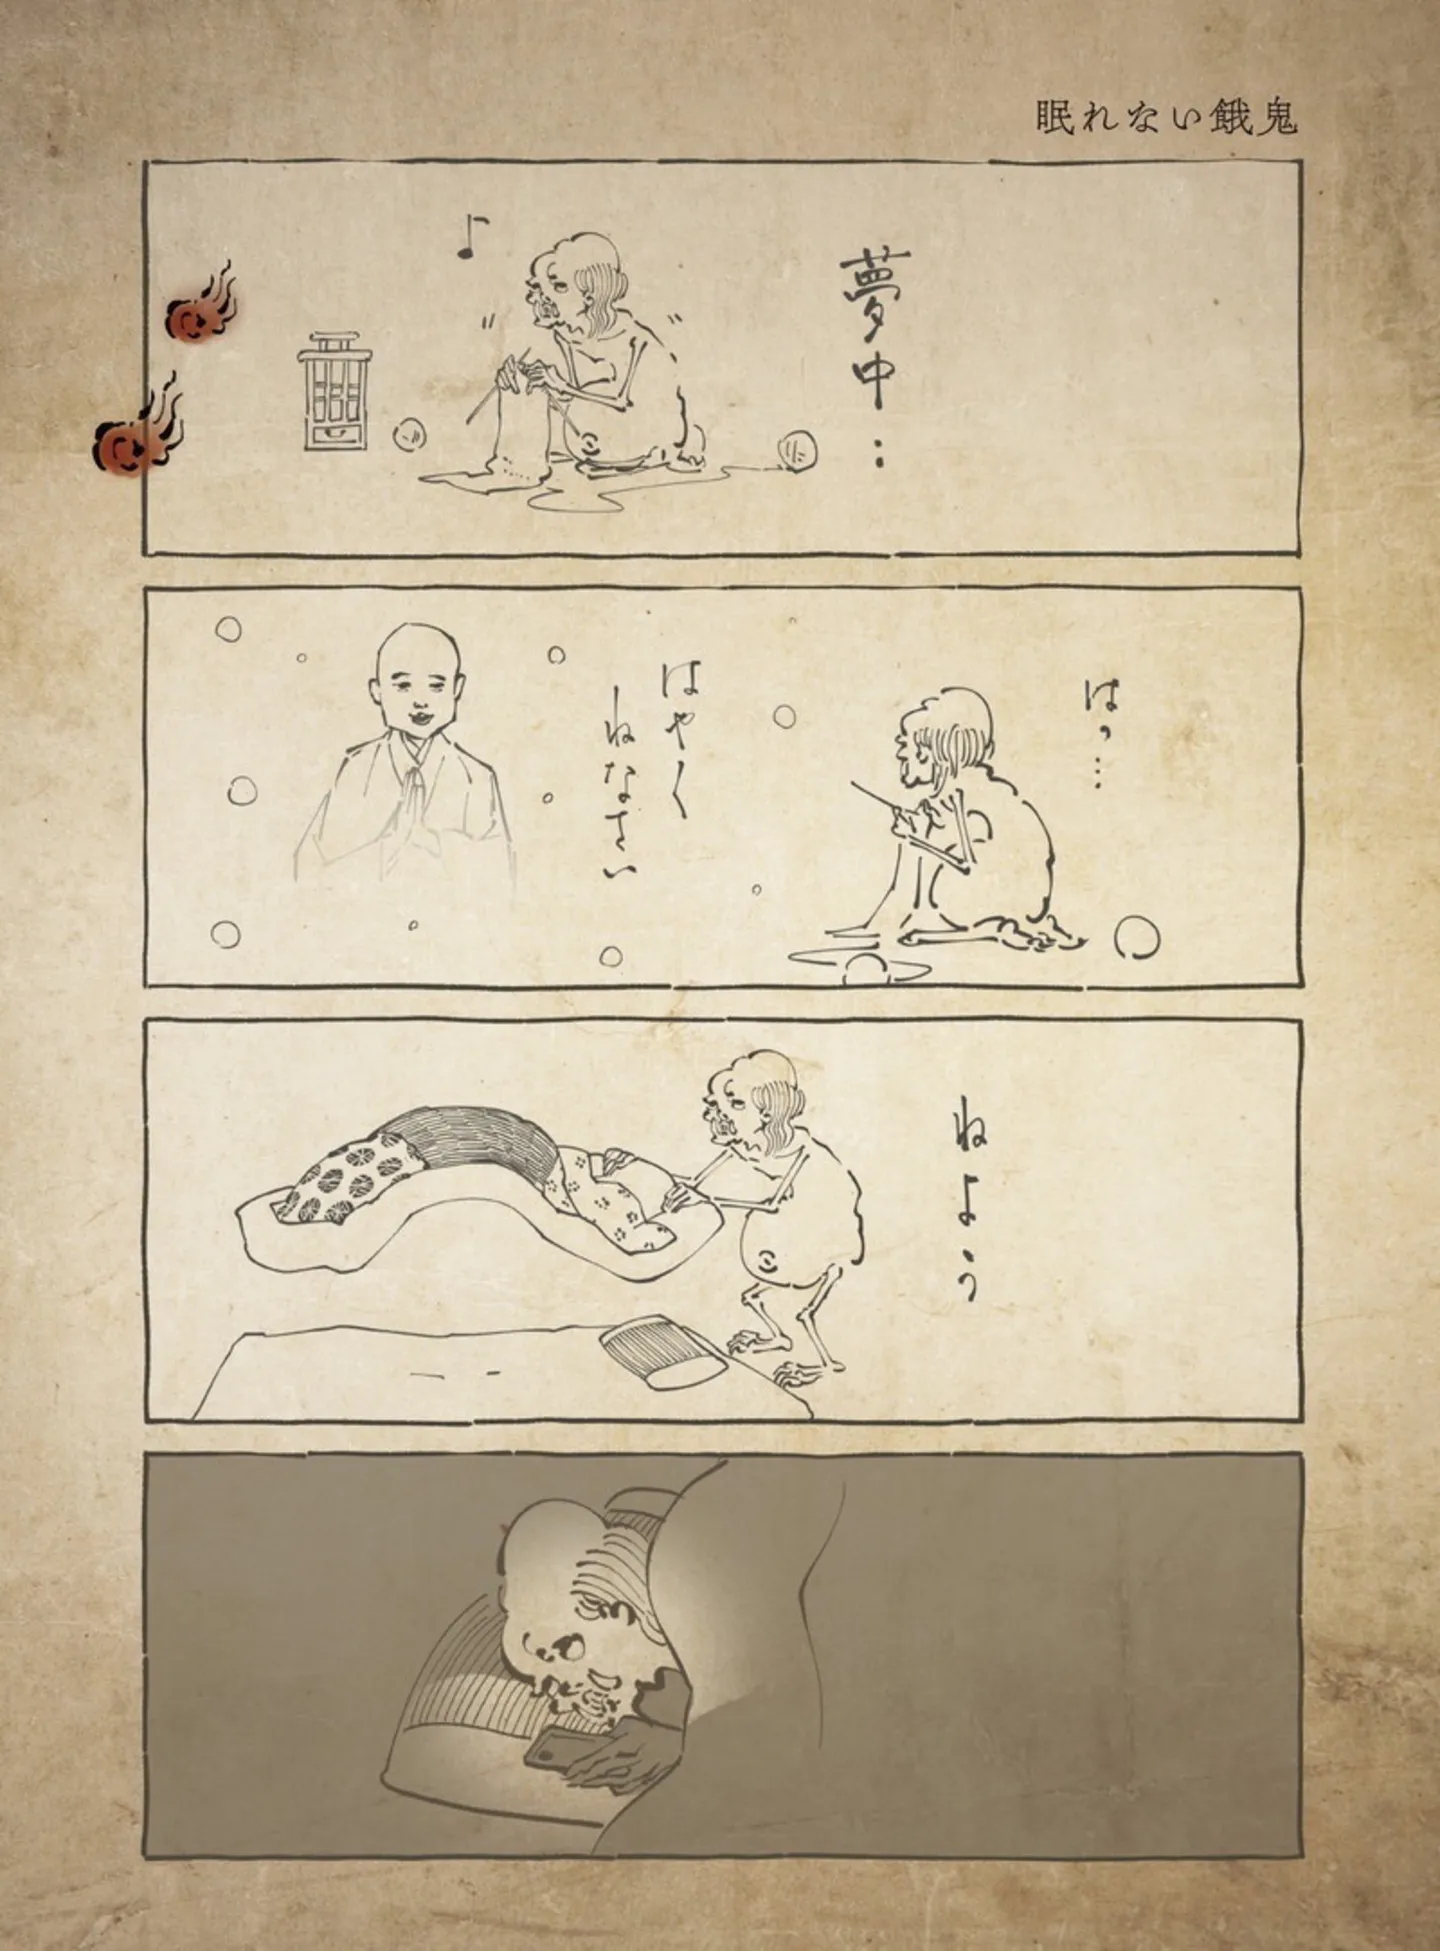 眠れない餓鬼
夢中…
はっ…
はやく
ねなさい
ねよう